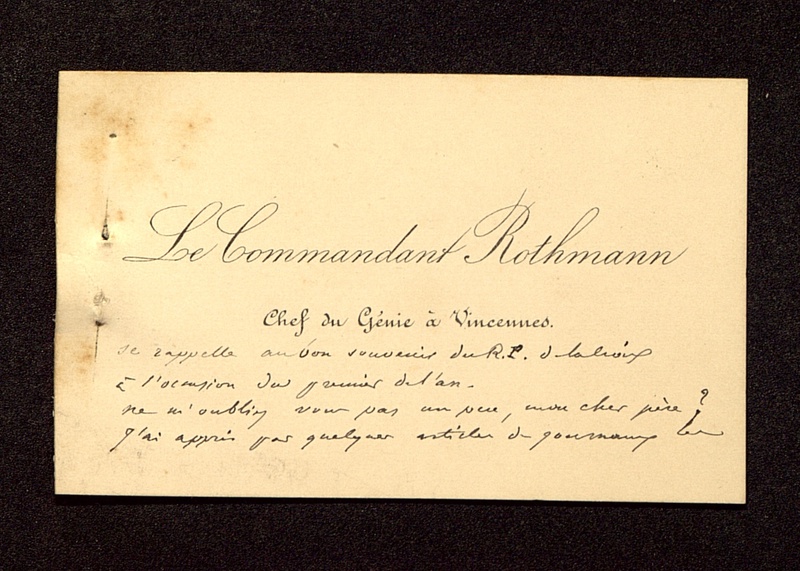 Le Commandant Rothmann
Chef du Génie à Vincennes.
se rappelle au bon souvenir du R.P. delacroix
à l'occasion du premier de l'an.
ne m'oubliez vous pas un peu, mon cher père ?
J'ai appris par quelques articles de journaux les